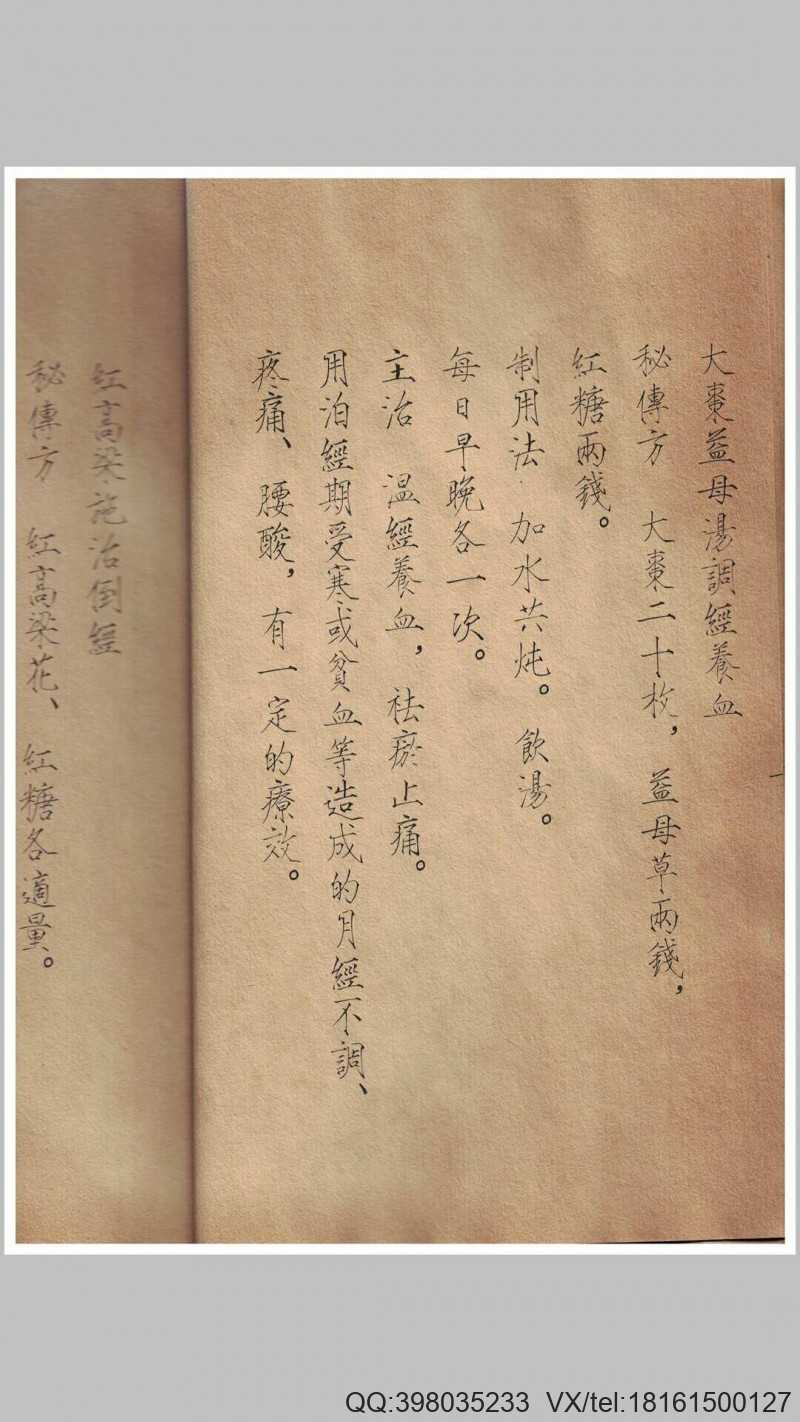 大棗益母湯調經養血
秘傳方　大棗二十枚，益母草兩錢，
紅糖兩錢。
制用法　加水共炖。飲湯。
每日早晚各一次。
主治　溫經養血，祛瘀止痛。
用治經期受寒或貧血等造成的月經不調、
疼痛、腰酸，有一定的療效。
紅高粱花治倒經
秘傳方　紅高粱花、紅糖各適量。
QQ:398035233 VX/tel:18161500127